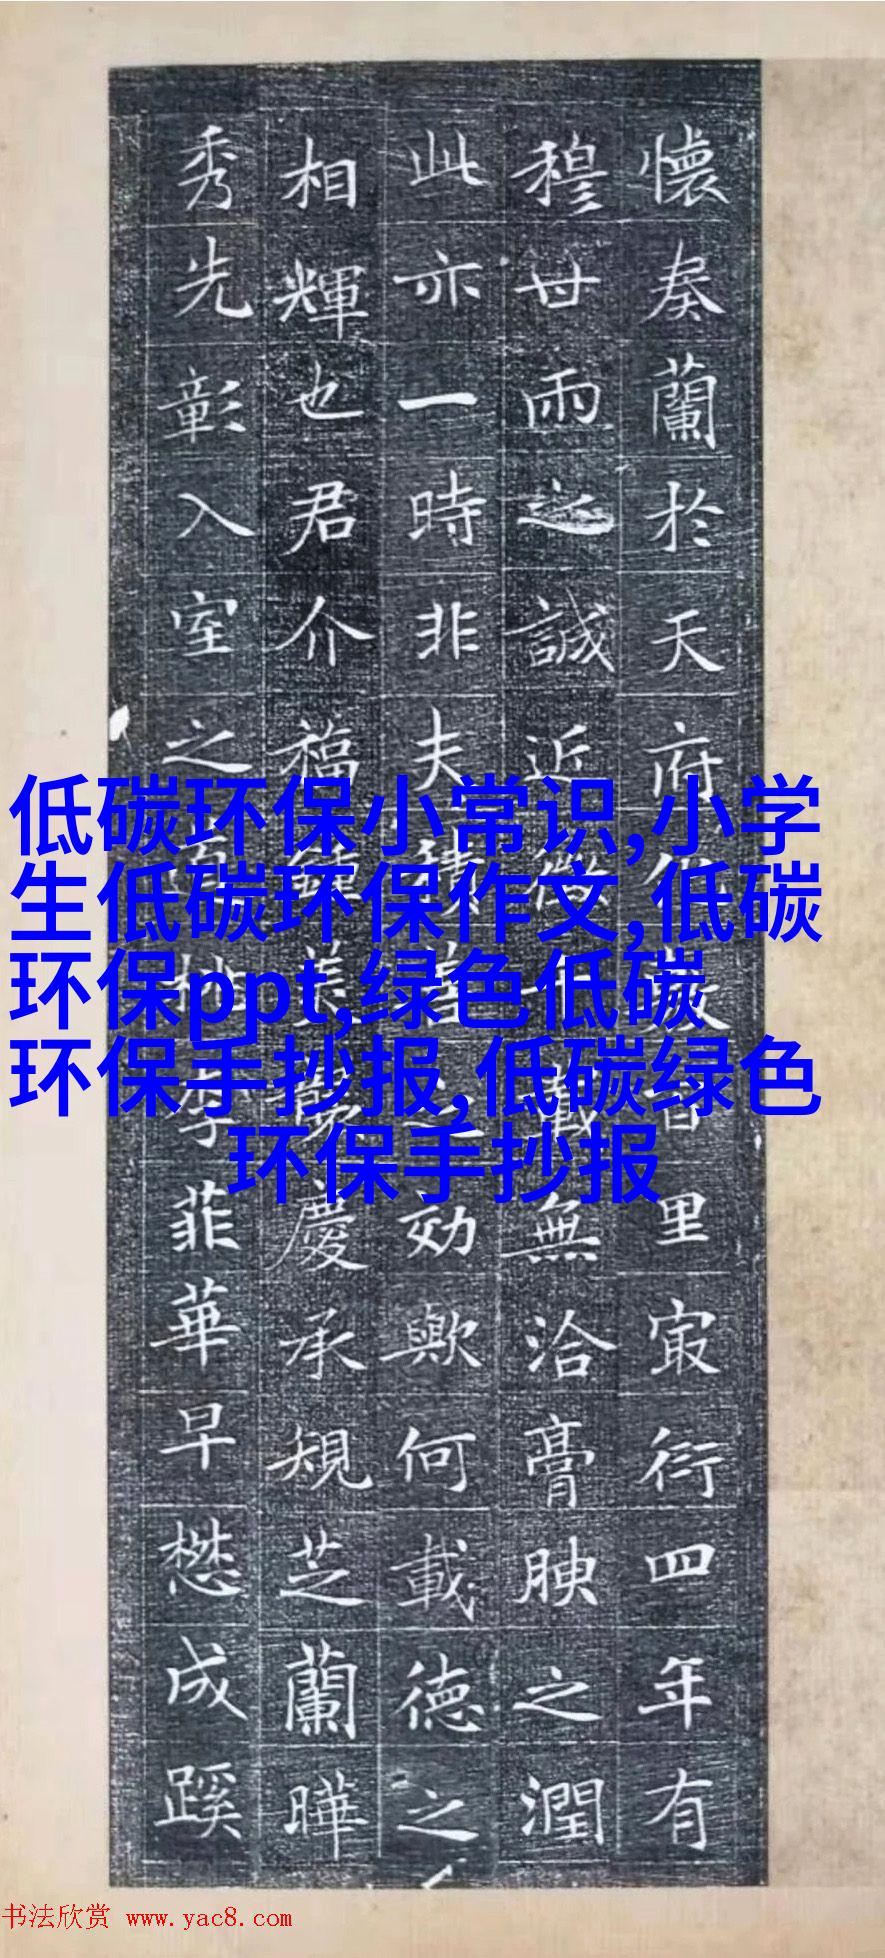 懷奏蘭於天府里冣衍四年有
穆世雨之誠近徵無洽膏腴之潤
此亦一時非夫積善之効歟何載德之
相輝也君介福鍾美慶承規芝蘭曄
秀先彰入室之李菲華早懋成蹊
低碳环保小常识,小学
生低碳环保作文,低碳
环保ppt,绿色低碳
环保手抄报,低碳绿色
环保手抄报
书法欣赏 www.yac8.com